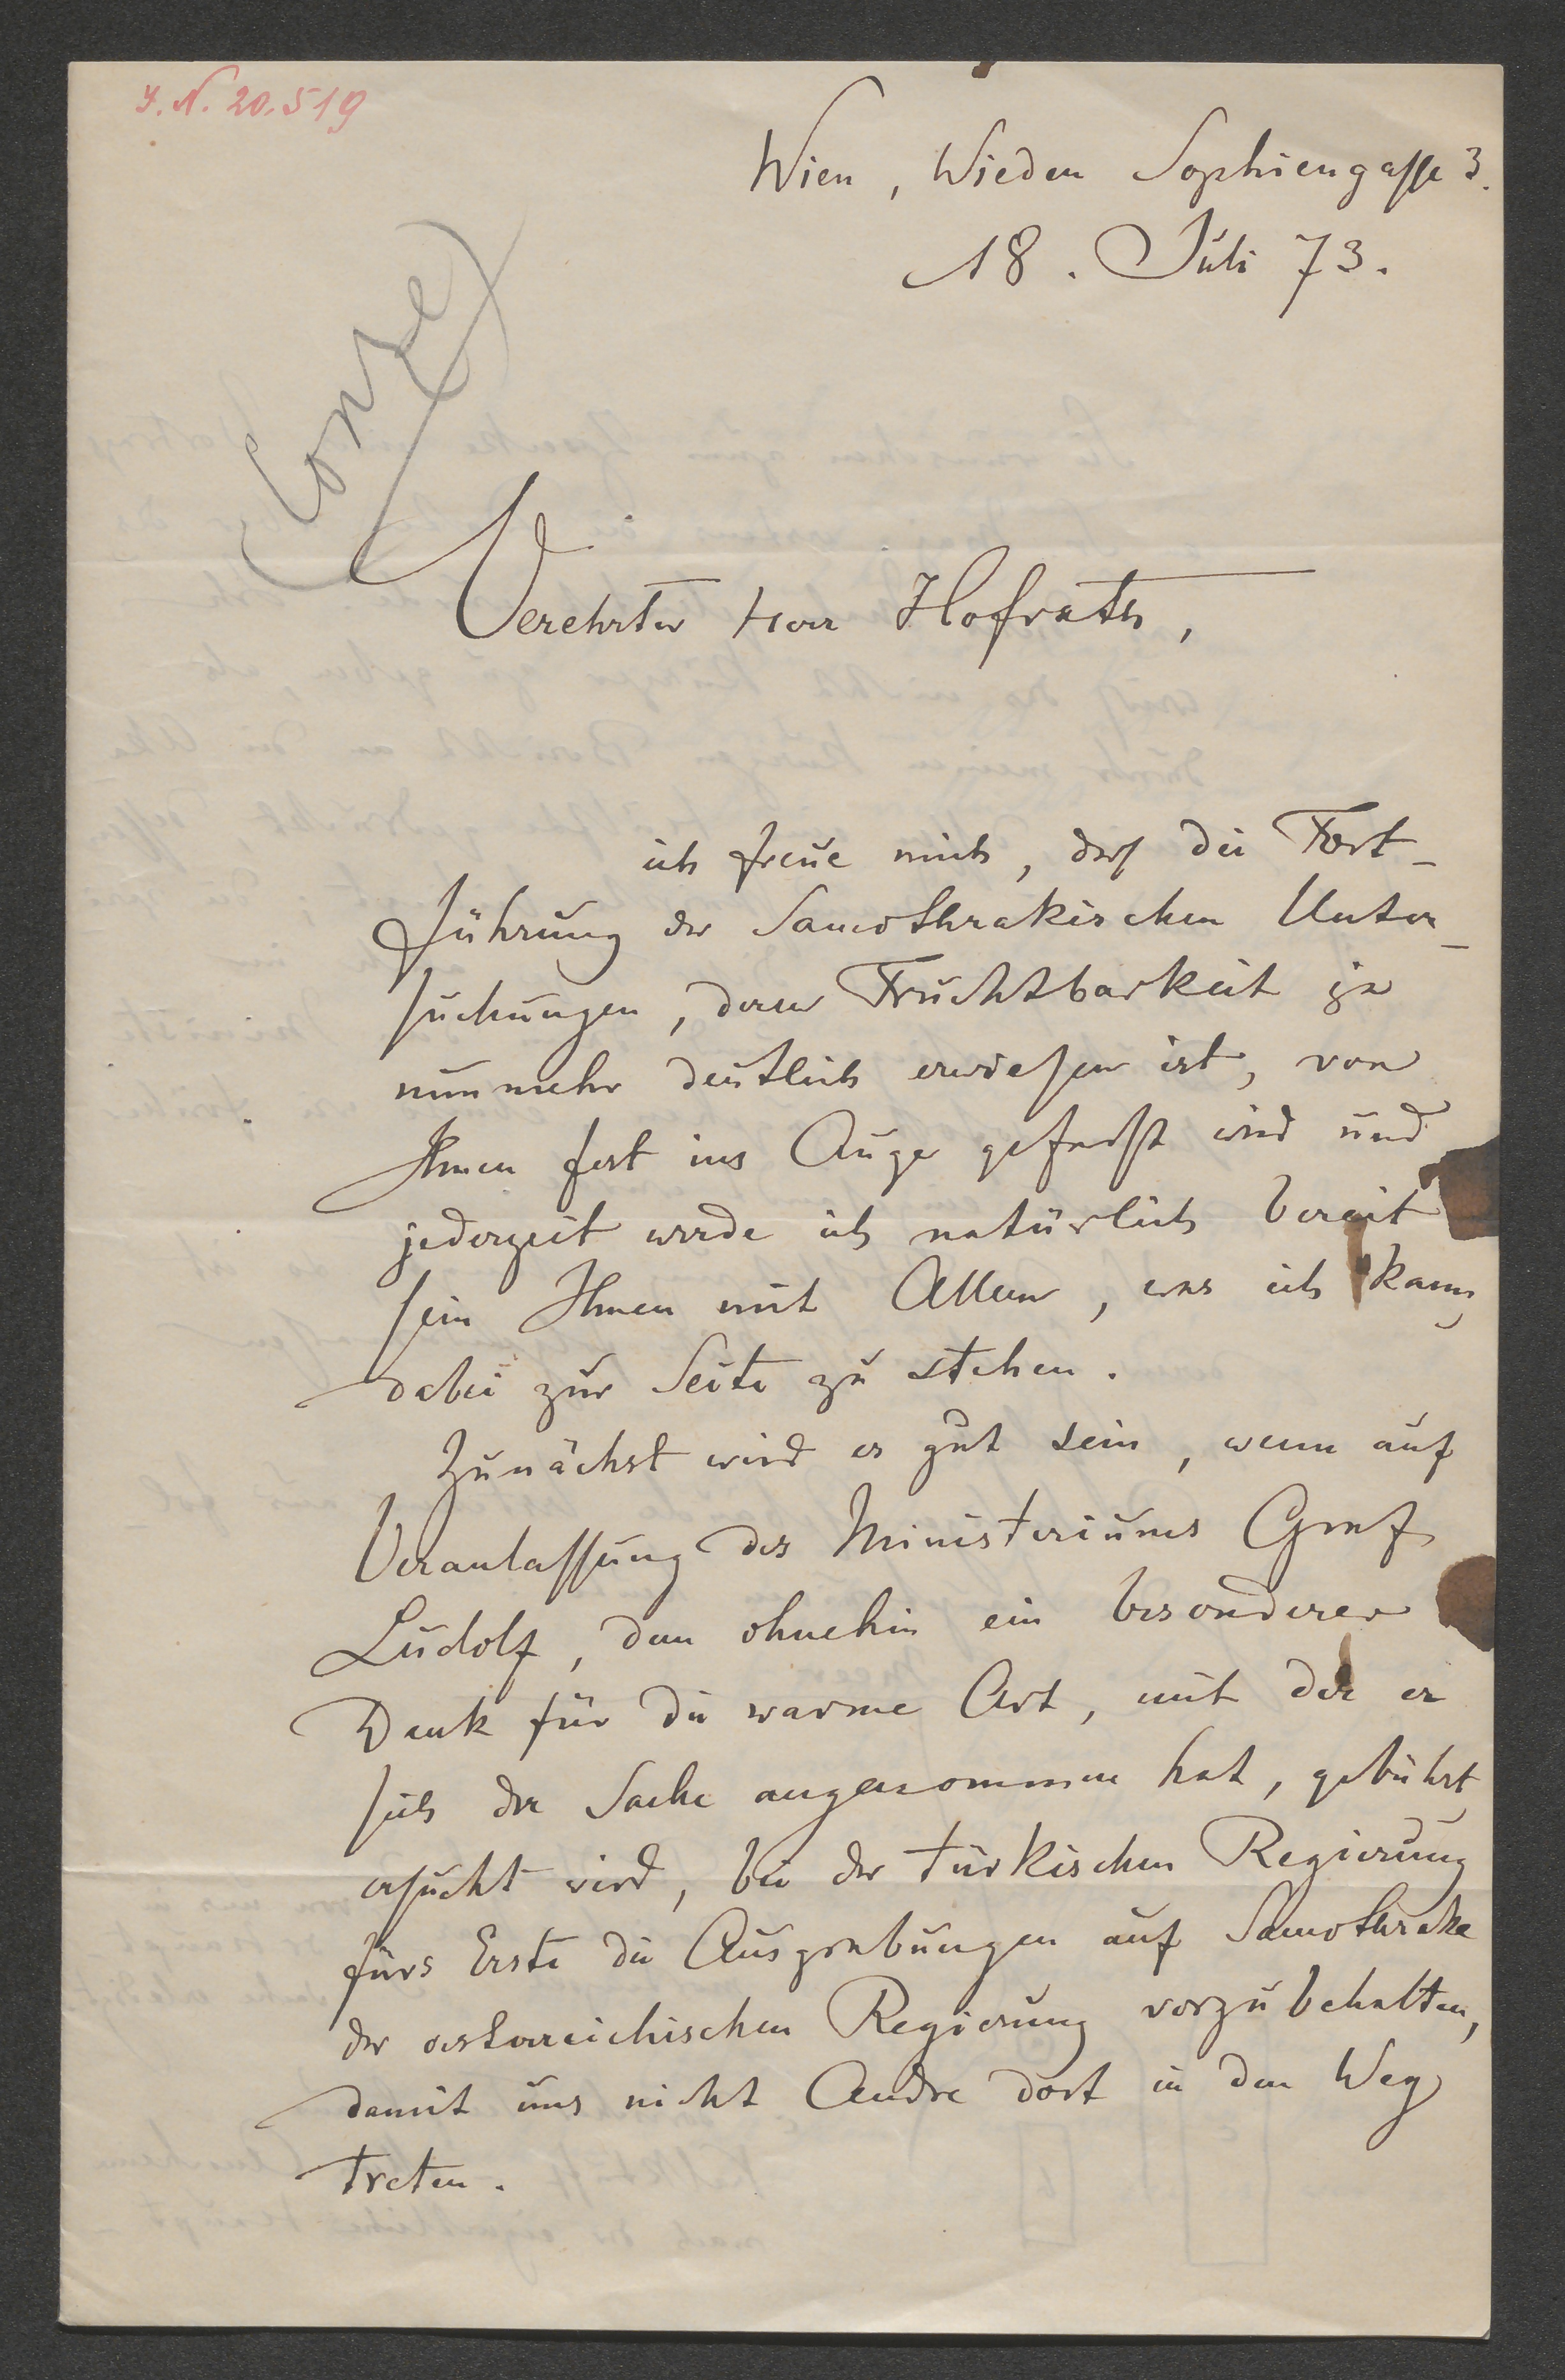 J. N. 20.519
Wien, Wieden Sophiengasse 3.
18. Juli 73.
(Conze)
Verehrter Herr Hofrath,
ich freue mich, daß die Fort-
führung der Samothrakischen Unter-
suchungen, deren Fruchtbarkeit ja
nunmehr deutlich erwiesen ist, von
Ihnen fest ins Auge gefasst wird und
jederzeit werde ich natürlich bereit
sein Ihnen mit Allem, was ich kann,
dabei zur Seite zu stehen.
Zunächst wird es gut sein, wenn auf
Veranlassung des Ministeriums Graf
Ludolf, dem ohnehin ein besonderer
Dank für die warme Art, mit der er
sich der Sache angenommen hat, gebührt,
ersucht wird, bei der türkischen Regierung
fürs Erste die Ausgrabungen auf Samothrake
der oesterreichischen Regierung vorzubehalten,
damit uns nicht Andre dort in den Weg
treten.